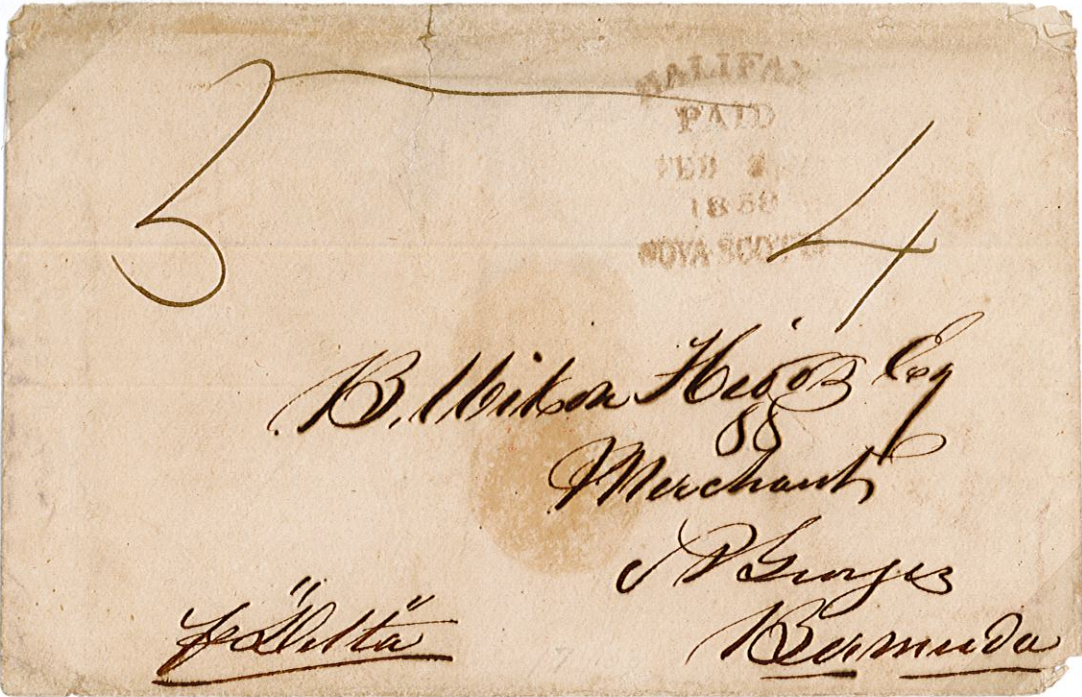 5
HALIFAX
PAID
FEB
1858
NOVA SCOTIA
4
B. Wilson Higgs Esq
Merchant
St Georges
Bermuda
pr "Delta"